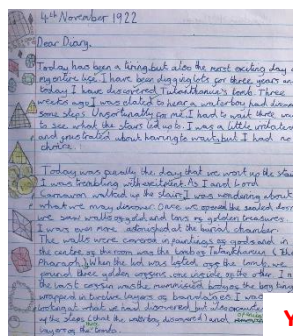 4th November 1922
Dear Diary,
Today has been a tiring but also the most exciting day of
my entire life. I have been digging lots for three years and
today I have discovered Tutankhamun's tomb. Three
weeks ago I was elated to hear a waterboy had
some steps. Unfortunately for me, I had to wait three
to see what the stairs led up to. I was a little
and frustrated about having to wait, but I had no
choice!
Today was finally the day that we went up the
I was trembling with excitement. As I and Lord
Carnarvon walked up the stairs I was wondering about
what we may discover. Once we opened the sealed door
we saw walls of gold and tons of golden treasures.
I was even more astonished at the burial chamber.
The walls were covered in paintings of gods and in
the centre of the room was the tomb of Tutankhamun (the
Pharaoh). When the lid was lifted off the tomb, we
found three golden coffins, one inside of the other. In
the last coffin was the mummified body of the boy king
wrapped in twelve layers of bandages. I was
looking at what we had discovered, but also
by the stairs (that the waterboy discovered) and
layer of the tomb.
Y